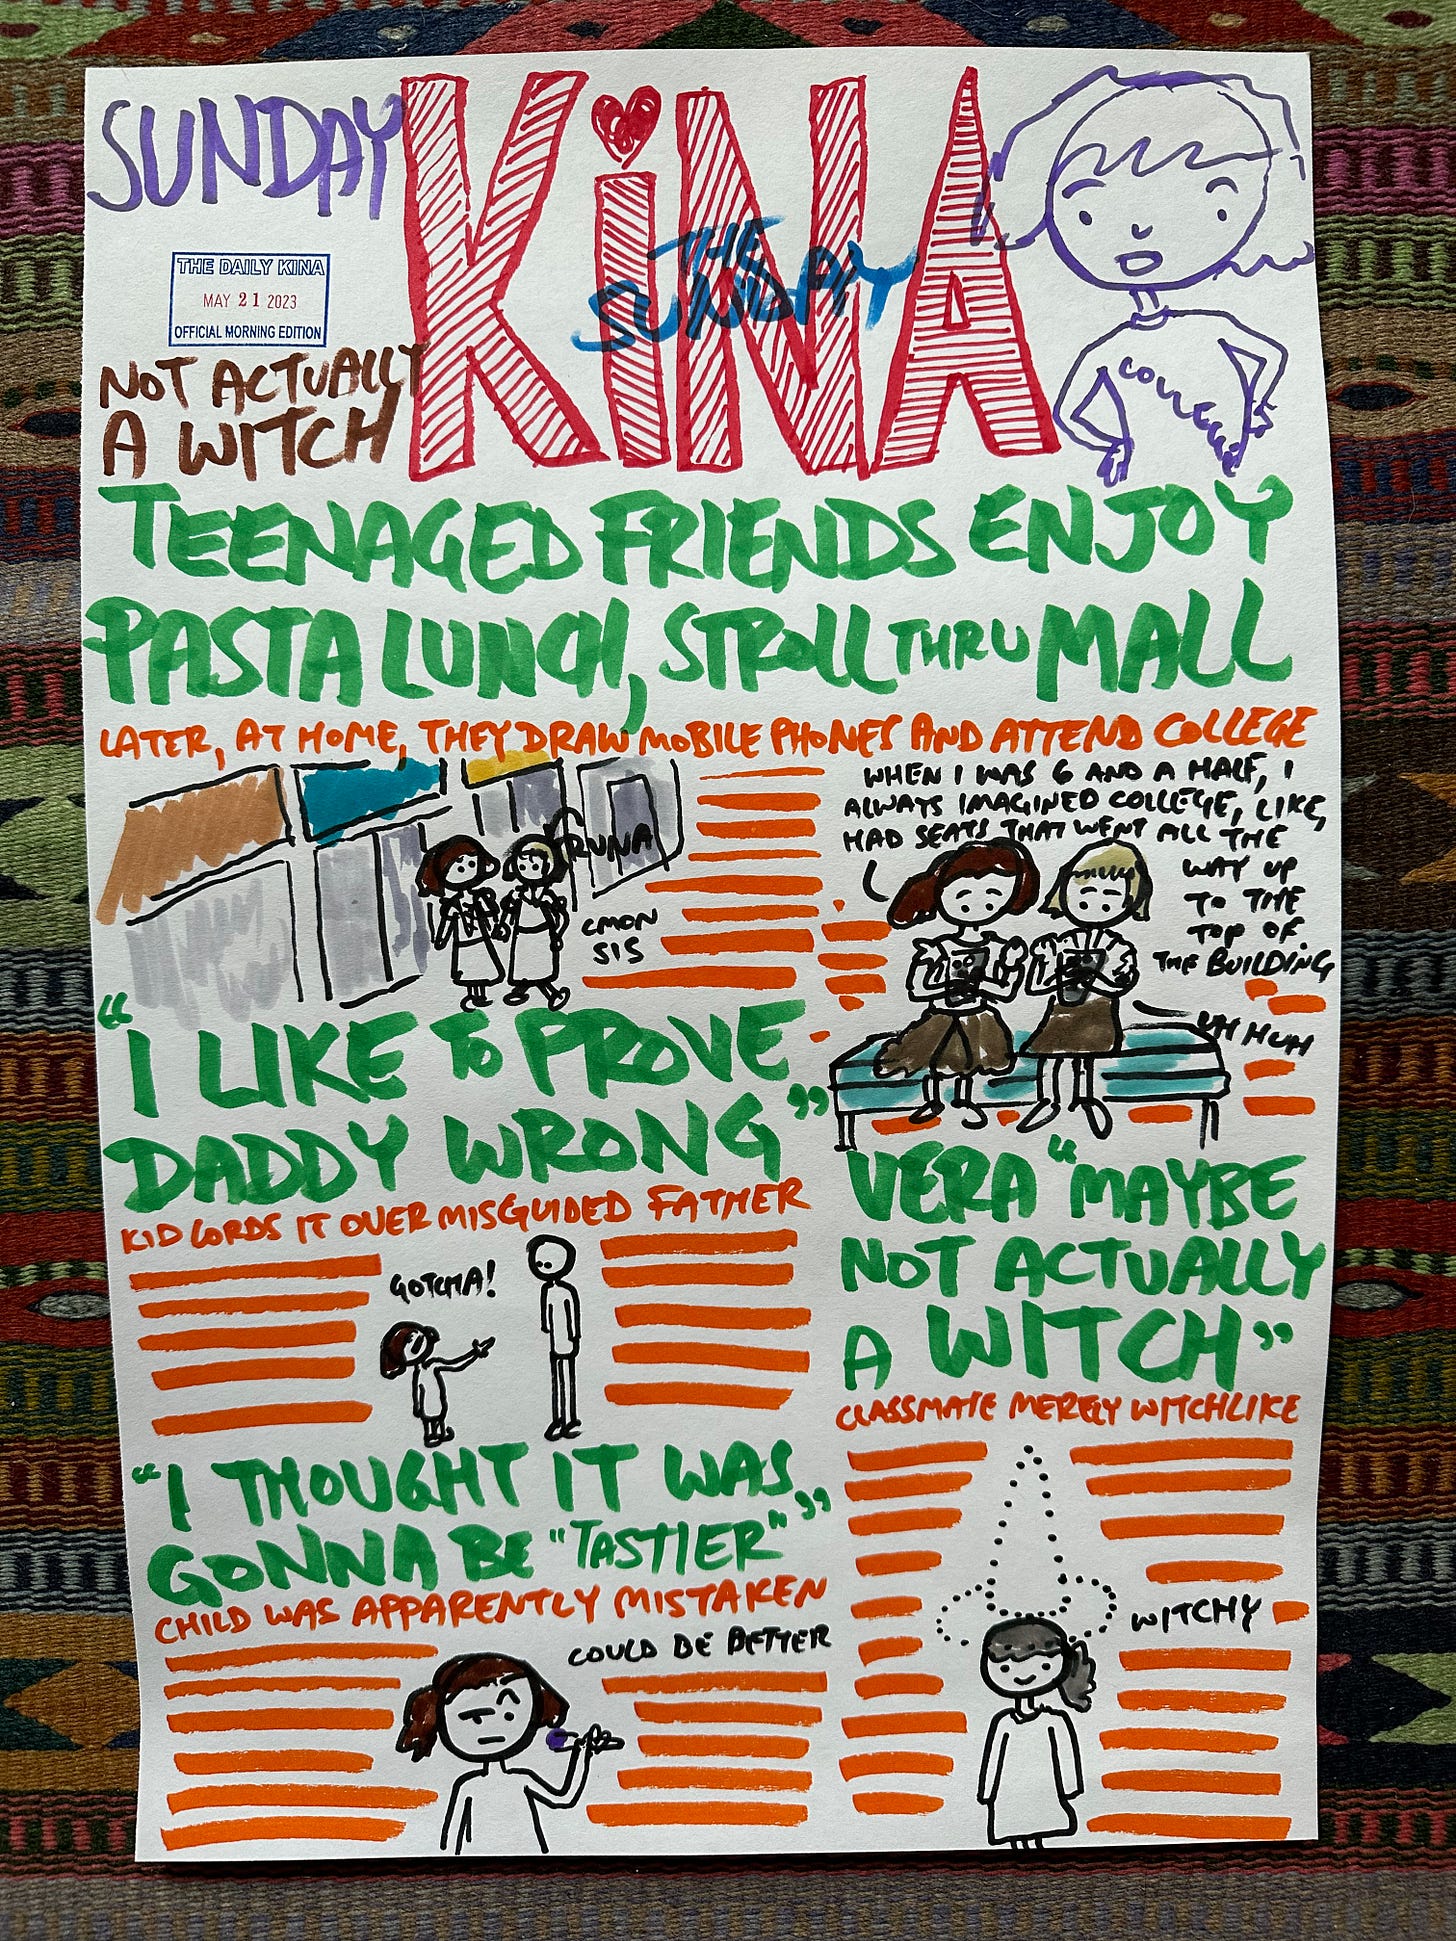 SUNDAY
KiNA
THE
SUNDAY
THE DAILY KINA
MAY 21 2023
OFFICIAL MORNING EDITION
NOT ACTUALLY
A WITCH
COLLEGE
TEENAGED FRIENDS ENJOY
PASTA LUNCH, STROLL THRU MALL
LATER, AT HOME, THEY DRAW MOBILE PHONES AND ATTEND COLLEGE
CMON
SIS
WHEN I WAS 6 AND A HALF, I
ALWAYS IMAGINED COLLEGE, LIKE,
HAD SEATS THAT WENT ALL THE
WAY UP
TO THE
TOP OF
THE BUILDING
UH HUH
"I LIKE TO PROVE
DADDY WRONG"
KID LORDS IT OVER MISGUIDED FATHER
GOTCHA!
VERA "MAYBE
NOT ACTUALLY
A WITCH"
CLASSMATE MERELY WITCHLIKE
WITCHY
"I THOUGHT IT WAS
GONNA BE "TASTIER""
CHILD WAS APPARENTLY MISTAKEN
COULD BE BETTER